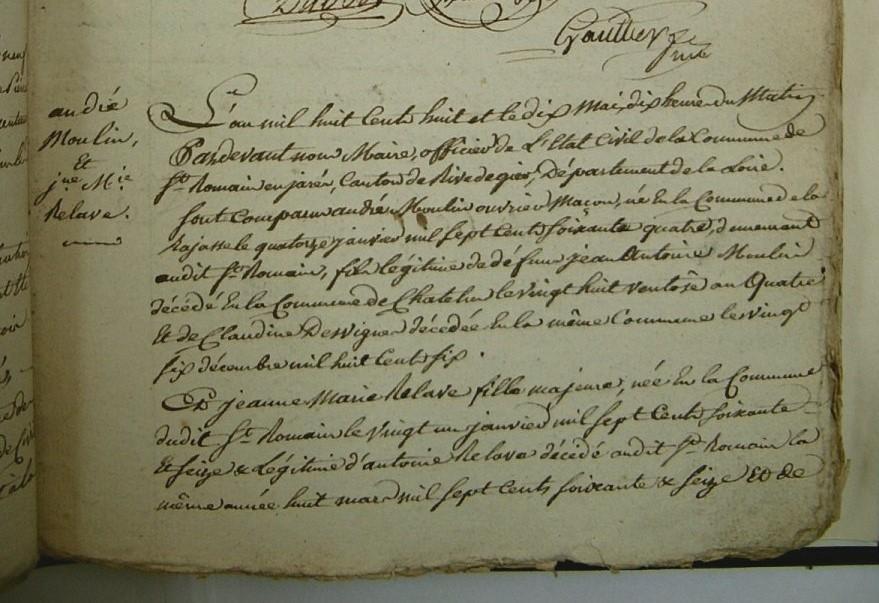 Gaultier
andré
Moulin,
Et
jne Mie
Relave.
L'an mil huit Cents huit et le dix Mai, dix heures du Matin
Pardevant nous Maire, officier de L'Etat Civil de la Commune de
St Romain en jarés, Canton de Rivedegier, Département de la Loire.
sont comparus andré Moulin ouvrier Maçon, né En la Commune de la
Rajasse le quatorze janvier mil sept Cents soixante quatre, demeurant
audit St Romain, fils légitime de défunt jean Antoine Moulin
décédé En la Commune de Chatelus le vingt huit ventôse an Quatre
Et de Claudine Desvignes décédée En la même Commune le vingt
six décembre mil huit Cents six.
Et jeanne Marie Relave fille majeure, née En la Commune
dudit St Romain le vingt un janvier mil sept Cents soixante
Et seize & Légitime d'antoine Relave décédé audit St Romain la
même année huit mars mil sept Cents soixante & seize Et de